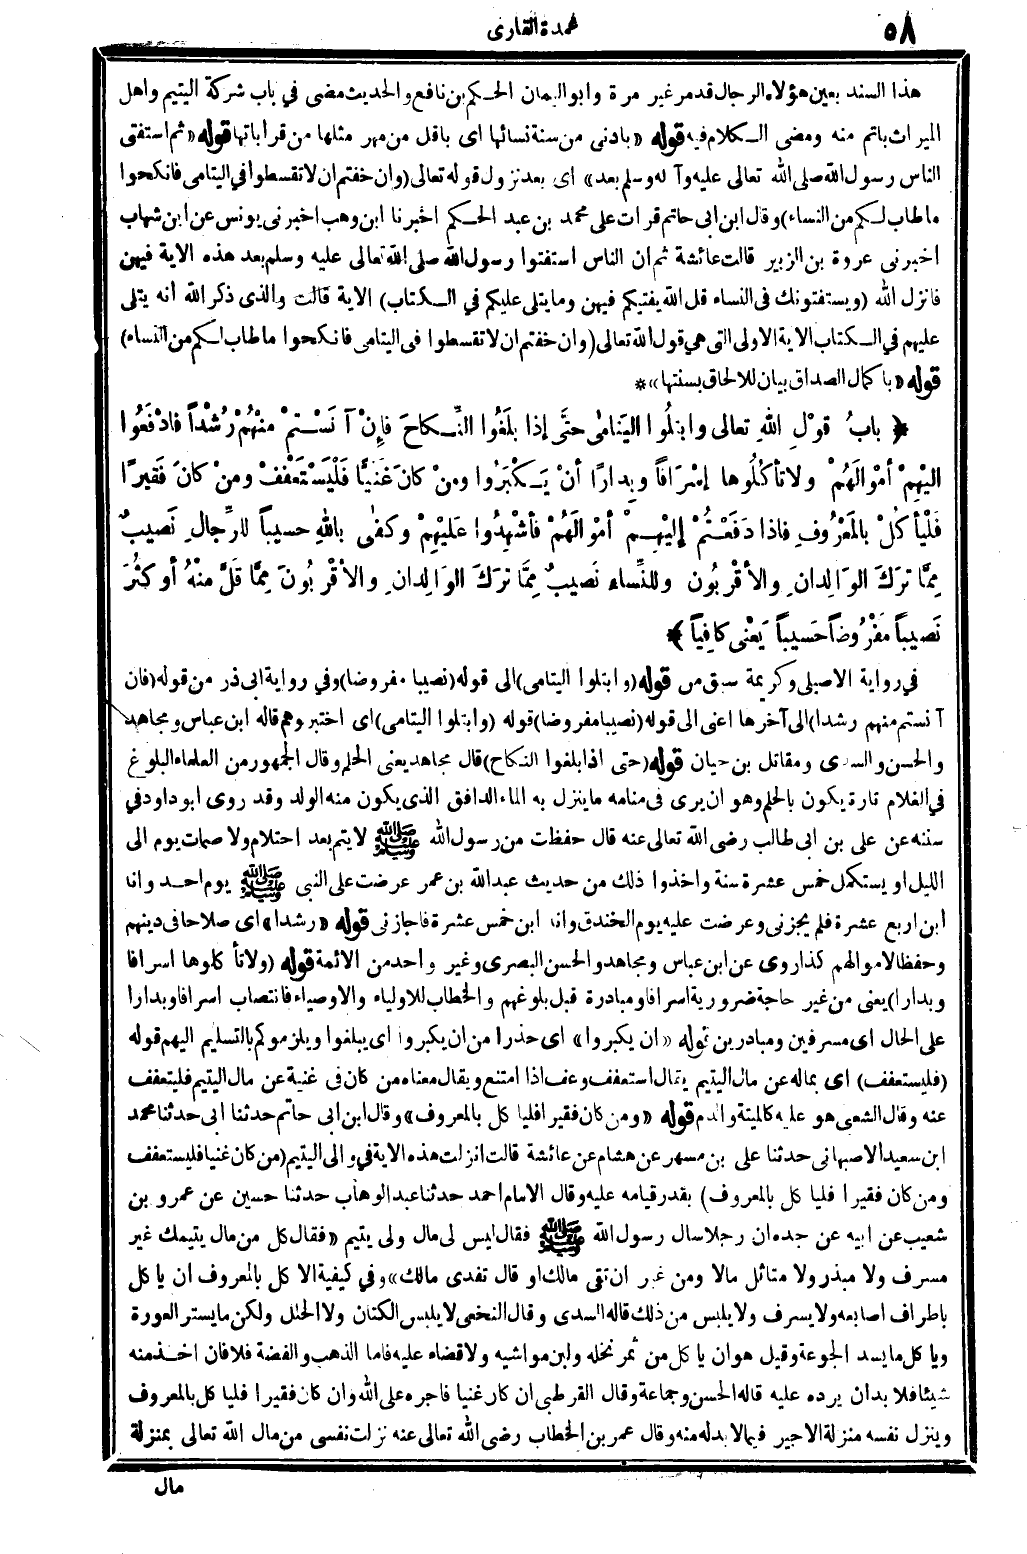 ٥٨
عمدة القارى
هذا السند بعين هؤلاء الرجال قد مر غير مرة وابو اليمان الحكم بن نافع والحديث مضى في باب شركة اليتيم واهل
الميراث باتم منه ومضى الكلام فيه قوله «بادنى من سنة نسائها اى باقل من مهر مثلها من قراباتها قوله «ثم استفتى
الناس رسول الله صلى الله تعالى عليه وآله وسلم بعد» اى بعد نزول قوله تعالى (وان خفتم ان لا تقسطوا في اليتامى فانكحوا
ما طاب لكم من النساء) وقال ابن ابى حاتم قرات على محمد بن عبد الحكم اخبرنا ابن وهب اخبرنى يونس عن ابن شهاب
اخبرنى عروة بن الزبير قالت عائشة ثم ان الناس استفتوا رسول الله صلى الله تعالى عليه وسلم بعد هذه الاية فيهن
فانزل الله (ويستفتونك فى النساء قل الله يفتيكم فيهن وما يتلى عليكم في الكتاب) الاية قالت والذى ذكر الله أنه يتلى
عليهم في الكتاب الاية الاولى التى هي قول الله تعالى (وان خفتم ان لا تقسطوا فى اليتامى فانكحوا ما طاب لكم من النساء)
قوله «باكمال الصداق بيان للالحاق بسنتها» *
﴿ بابُ قوْلِ اللهِ تعالى وابتلُوا اليَتامَى حتَّى إذا بلَغُوا النِّكاحَ فإنْ آنَسْتمْ منْهُمْ رُشْداً فادْفَعُوا
اليْهِمْ أمْوالَهُمْ ولا تأكُلُوها إسْرَافاً وبِدارًا أنْ يَكْبَرُوا ومنْ كانَ غَنيًّا فَلْيَسْتَعْففْ ومنْ كانَ فَقيرًا
فَلْيأكُلْ بالمَعْرُوفِ فاذا دَفَعْتُمْ إليْهِمْ أمْوالَهُمْ فأشْهِدُوا عَليْهِمْ وكفَى باللهِ حسيباً للرِّجالِ نَصيبٌ
مِمَّا تَرَكَ الوَالِدانِ والأقْرَبُون وللنِّساءِ نَصيبٌ مِمَّا تَرَكَ الوَالِدانِ والأقْرَبُونَ مِمَّا قَلَّ منْهُ أو كثُرَ
نَصيباً مَفْرُوضاً حَسيباً يَعْنى كافِياً ﴾
في رواية الاصيلى وكريمة سبق من قوله (وابتلوا اليتامى) الى قوله (نصيبا مفروضا) وفي رواية ابى ذر من قوله (فان
آنستم منهم رشدا) الى آخرها اعنى الى قوله (نصيبا مفروضا) قوله (وابتلوا اليتامى) اى اختبروهم قاله ابن عباس ومجاهد
والحسن والسدى ومقاتل بن حيان قوله (حتى اذا بلغوا النكاح) قال مجاهد يعنى الحلم وقال الجمهور من العلماء البلوغ
في الغلام تارة يكون بالحلم وهو ان يرى فى منامه ما ينزل به الماء الدافق الذى يكون منه الولد وقد روى ابو داود في
سننه عن على بن ابى طالب رضى الله تعالى عنه قال حفظت من رسول الله ﷺ لا يتم بعد احتلام ولا صمات يوم الى
الليل او يستكمل خمس عشرة سنة واخذوا ذلك من حديث عبدالله بن عمر عرضت على النبى ﷺ يوم احد وانا
ابن اربع عشرة فلم يجزنى وعرضت عليه يوم الخندق وانا ابن خمس عشرة فاجازنى قوله «رشدا» اى صلاحا فى دينهم
وحفظا لاموالهم كذا روى عن ابن عباس ومجاهد والحسن البصرى وغير واحد من الائمة قوله (ولا تأكلوها اسرافا
وبدارا) يعنى من غير حاجة ضرورية اسرافا ومبادرة قبل بلوغهم والخطاب للاولياء والاوصياء فانتصاب اسرافا وبدارا
على الحال اى مسرفين ومبادرين قوله «ان يكبروا» اى حذرا من ان يكبروا اى يبلغوا ويلزموكم بالتسليم اليهم قوله
(فليستعفف) اى بماله عن مال اليتيم يقال استعفف وعف اذا امتنع ويقال معناه من كان فى غنية عن مال اليتيم فليتعفف
عنه وقال الشعبى هو عليه كالميتة والدم قوله «ومن كان فقيرا فليا كل بالمعروف» وقال ابن ابى حاتم حدثنا ابى حدثنا محمد
ابن سعيد الاصبهانى حدثنا على بن مسهر عن هشام عن عائشة قالت انزلت هذه الاية في والى اليتيم (من كان غنيا فليستعفف
ومن كان فقيرا فليا كل بالمعروف) بقدر قيامه عليه وقال الامام احمد حدثنا عبد الوهاب حدثنا حسين عن عمرو بن
شعيب عن ابيه عن جده ان رجلا سال رسول الله ﷺ فقال ليس لى مال ولى يتيم «فقال كل من مال يتيمك غير
مسرف ولا مبذر ولا متاثل مالا ومن غير ان تقى مالك او قال تفدى مالك» وفي كيفية الاكل بالمعروف ان ياكل
باطراف اصابعه ولا يسرف ولا يلبس من ذلك قاله السدى وقال النخعى لا يلبس الكتان ولا الحلل ولكن ما يستر العورة
وياكل ما يسد الجوعة وقيل هو ان ياكل من ثمر نخله ولبن مواشيه ولا قضاء عليه فاما الذهب والفضة فلا فان اخذ منه
شيئا فلا بد ان يرده عليه قاله الحسن وجماعة وقال القرطبى ان كان غنيا فاجره على الله وان كان فقيرا فليا كل بالمعروف
وينزل نفسه منزلة الاجير فيما لا بد له منه وقال عمر بن الخطاب رضى الله تعالى عنه نزلت نفسى من مال الله تعالى بمنزلة
مال